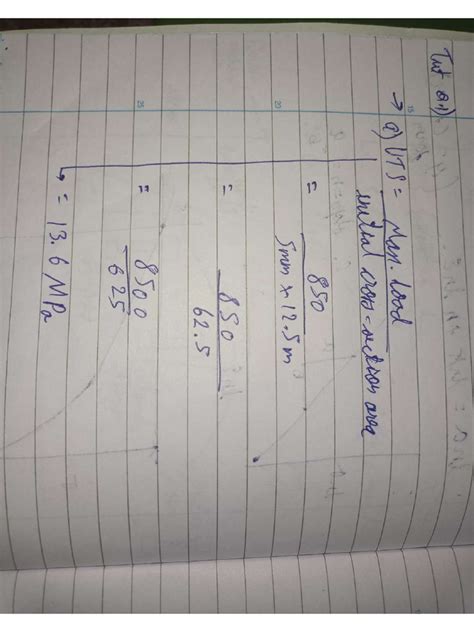 Tut Q1)
→ a) UTS = Max. load
initial cross-section area
= 850
5mm x 12.5m
= 850
62.5
= 8500
625
→ = 13.6 MPa
15
20
25